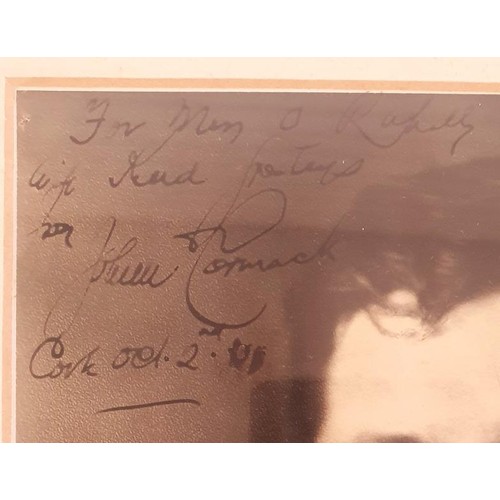 For Miss O Rahilly
with Kind greetings
from
John McCormack
Cork Oct. 2nd